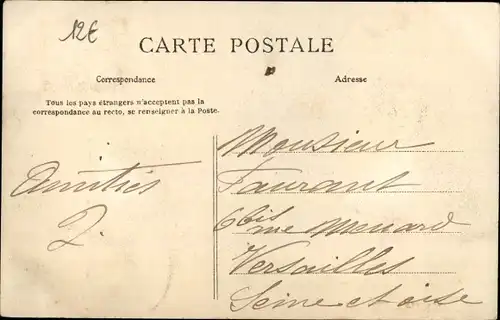 12€
CARTE POSTALE
Correspondance
Adresse
Tous les pays étrangers n'acceptent pas la
correspondance au recto, se renseigner à la Poste.
Amitiés
J.
Monsieur
Faurant
6 bis
rue Menard
Versailles
Seine et oise